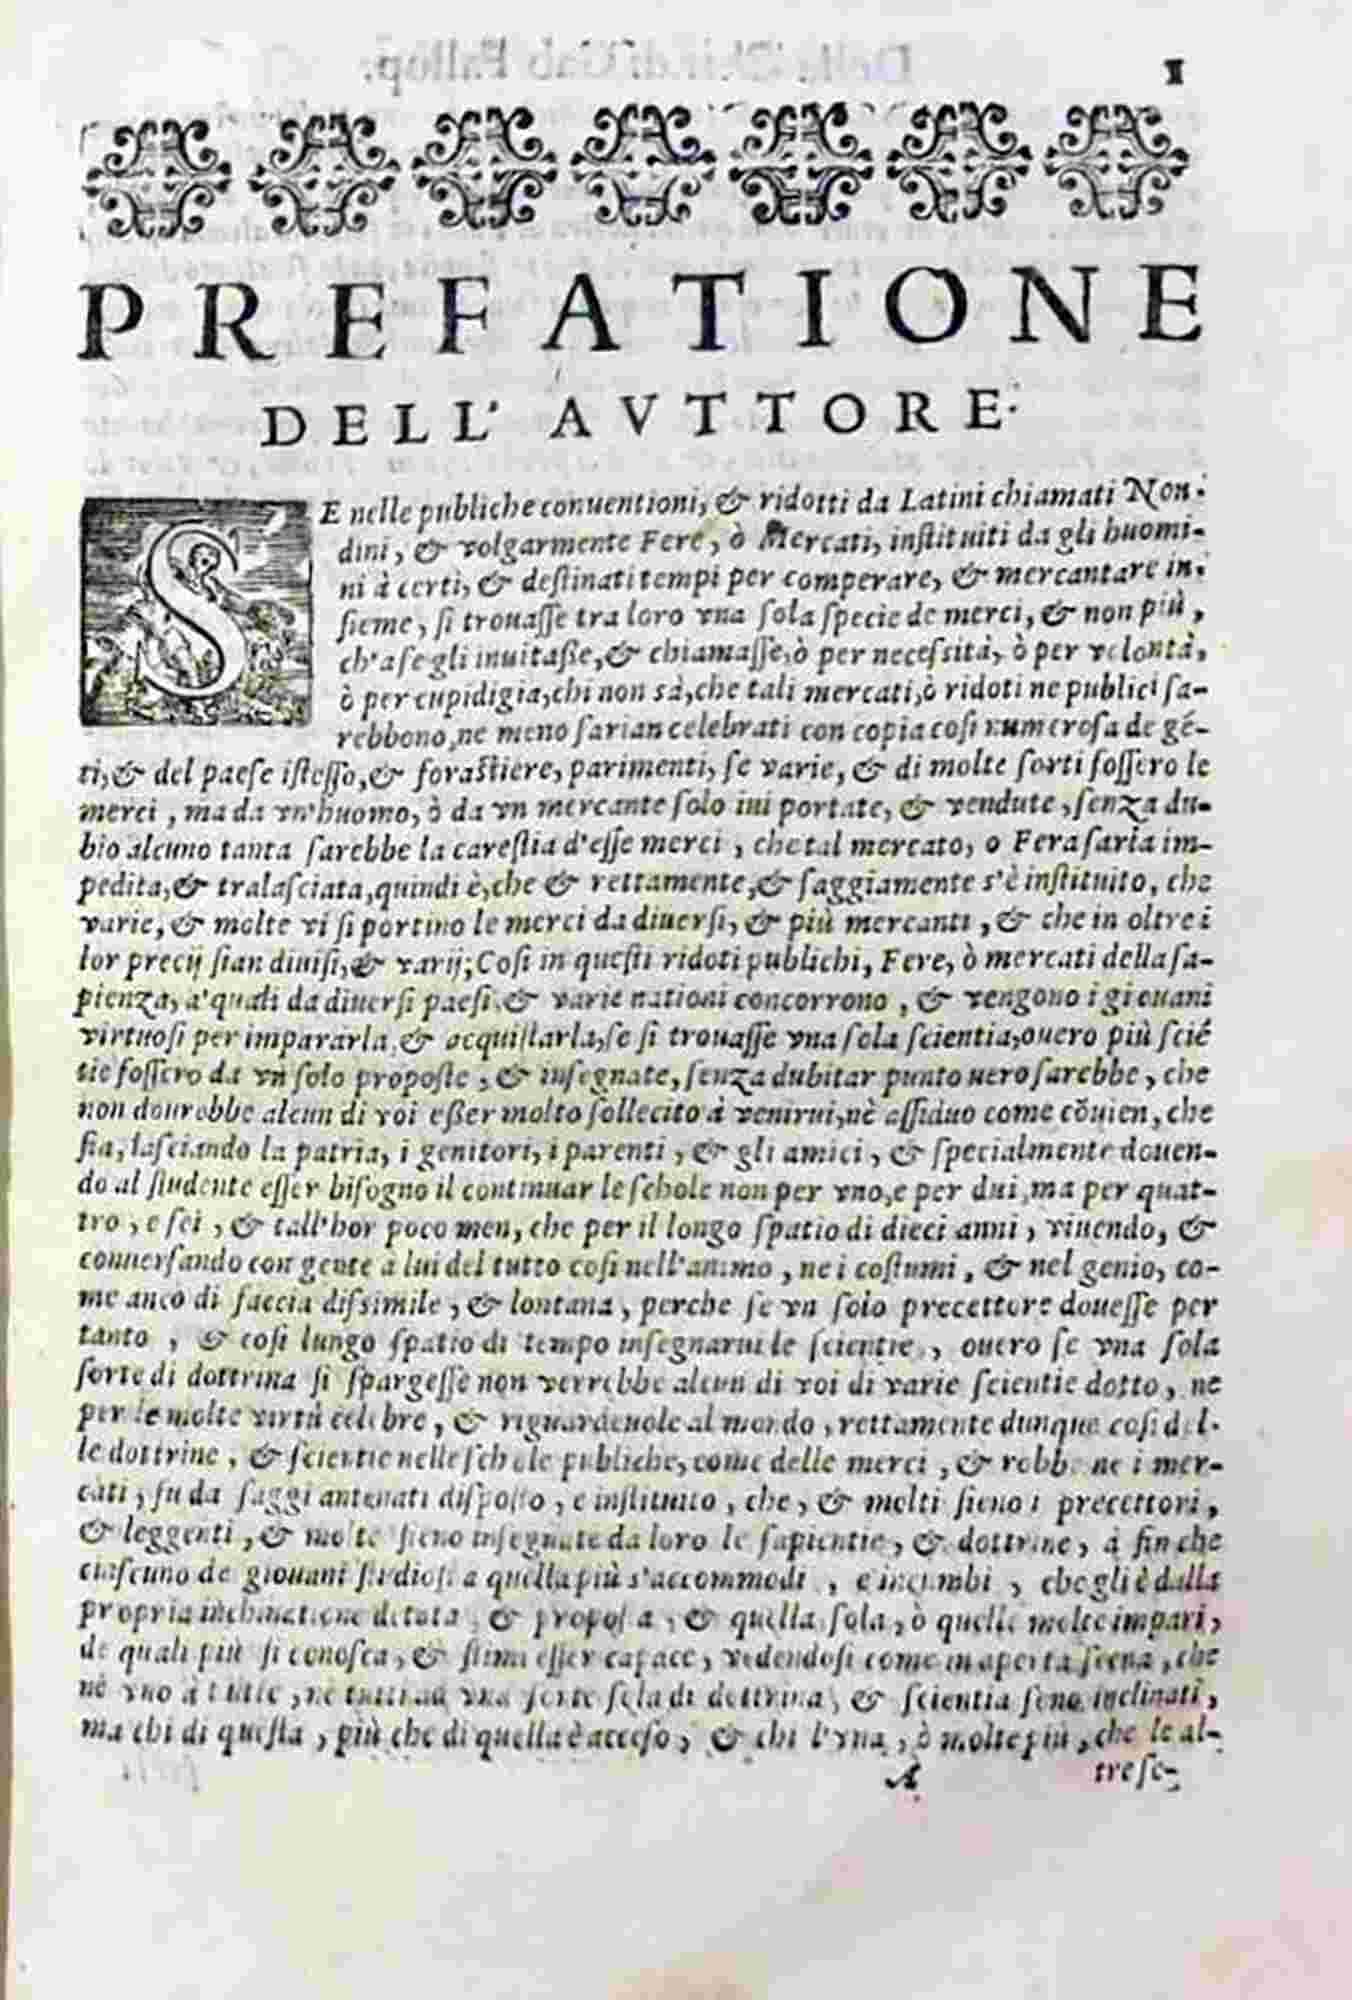 1
PREFATIONE
DELL' AVTTORE.
SE nelle publiche conuentioni, & ridotti da Latini chiamati Non-
dini, & volgarmente Fere, ò Mercati, instituiti da gli huomi-
ni à certi, & destinati tempi per comperare, & mercantare in-
sieme, si trouasse tra loro vna sola specie de merci, & non più,
ch'a se gli inuitasse, & chiamasse, ò per necessità, ò per volontà,
ò per cupidigia, chi non sà, che tali mercati, ò ridoti ne publici sa-
rebbono, ne meno sarian celebrati con copia cosi numerosa de gé-
ti, & del paese istesso, & forastiere, parimenti, se varie, & di molte sorti fossero le
merci, ma da vn'huomo, ò da vn mercante solo iui portate, & vendute, senza du-
bio alcuno tanta sarebbe la carestia d'esse merci, che tal mercato, o Fera saria im-
pedita, & tralasciata, quindi è, che & rettamente, & saggiamente s'è instituito, che
varie, & molte vi si portino le merci da diuersi, & più mercanti, & che in oltre i
lor precij sian diuisi, & varij; Cosi in questi ridoti publichi, Fere, ò mercati della sa-
pienza, a' quali da diuersi paesi, & varie nationi concorrono, & vengono i giouani
virtuosi per impararla, & acquistarla, se si trouasse vna sola scientia, ouero più scié
tie fossero da vn solo proposte, & insegnate, senza dubitar punto uero sarebbe, che
non dourebbe alcun di voi esser molto sollecito à venirui, nè assiduo come cõuien, che
sia, lasciando la patria, i genitori, i parenti, & gli amici, & specialmente douen-
do al studente esser bisogno il continuar le schole non per vno, e per dui, ma per quat-
tro, e sei, & tall'hor poco men, che per il longo spatio di dieci anni, viuendo, &
conuersando con gente à lui del tutto cosi nell'animo, ne i costumi, & nel genio, co-
me anco di faccia dissimile, & lontana, perche se vn solo precettore douesse per
tanto, & cosi lungo spatio di tempo insegnarui le scientie, ouero se vna sola
sorte di dottrina si spargesse non verrebbe alcun di voi di varie scientie dotto, ne
per le molte virtù celebre, & riguardeuole al mondo, rettamente dunque cosi del-
le dottrine, & scientie nelle schole publiche, come delle merci, & robbe ne i mer-
cati, fu da saggi antenati disposto, e instituito, che, & molti sieno i precettori,
& leggenti, & molte sieno insegnate da loro le sapientie, & dottrine, à fin che
ciascuno de giouani studiosi a quella più s'accommodi, e incumbi, che gli è dalla
propria inclinatione detata, & proposta, & quella sola, ò quelle molte impari,
de quali più si conosca, & stimi esser capace, vedendosi come in aperta scena, che
nè vno à tutte, nè tutti ad vna sorte sola di dottrina, & scientia sono inclinati,
ma chi di questa, più che di quella è acceso, & chi l'vna, ò molte più, che le al-
A
tre se-